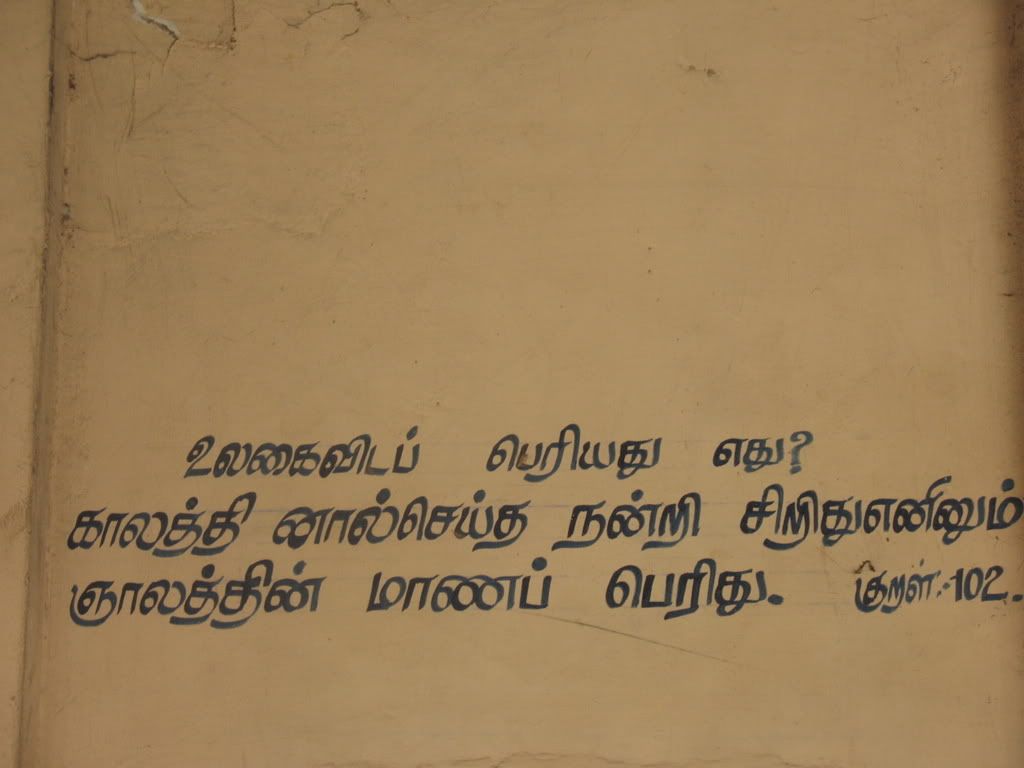 உலகைவிடப் பெரியது எது?
காலத்தி னால்செய்த நன்றி சிறிதுஎனினும்
ஞாலத்தின் மாணப் பெரிது. குறள்:-102.